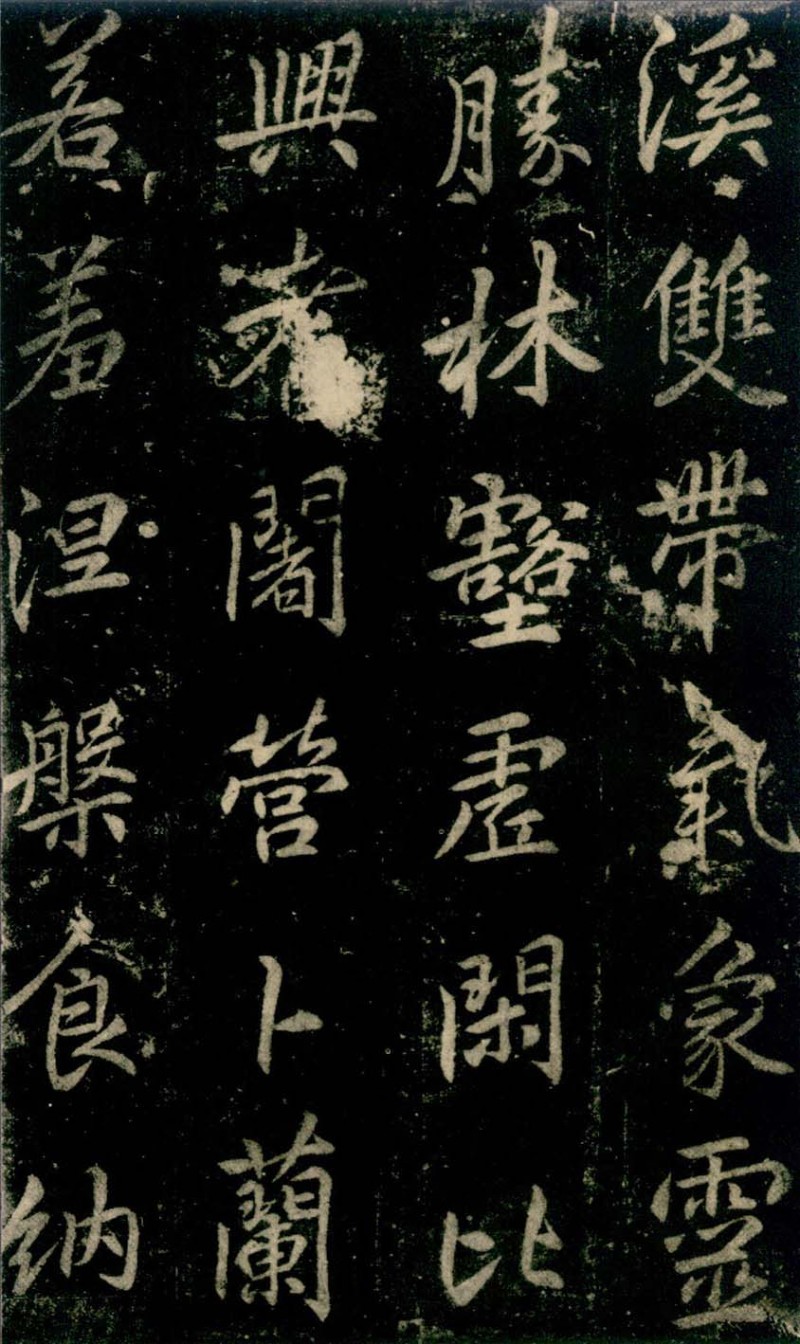 溪雙帶氣象靈
勝林壑虛閑比
興耆闍營卜蘭
若羞涅槃食納